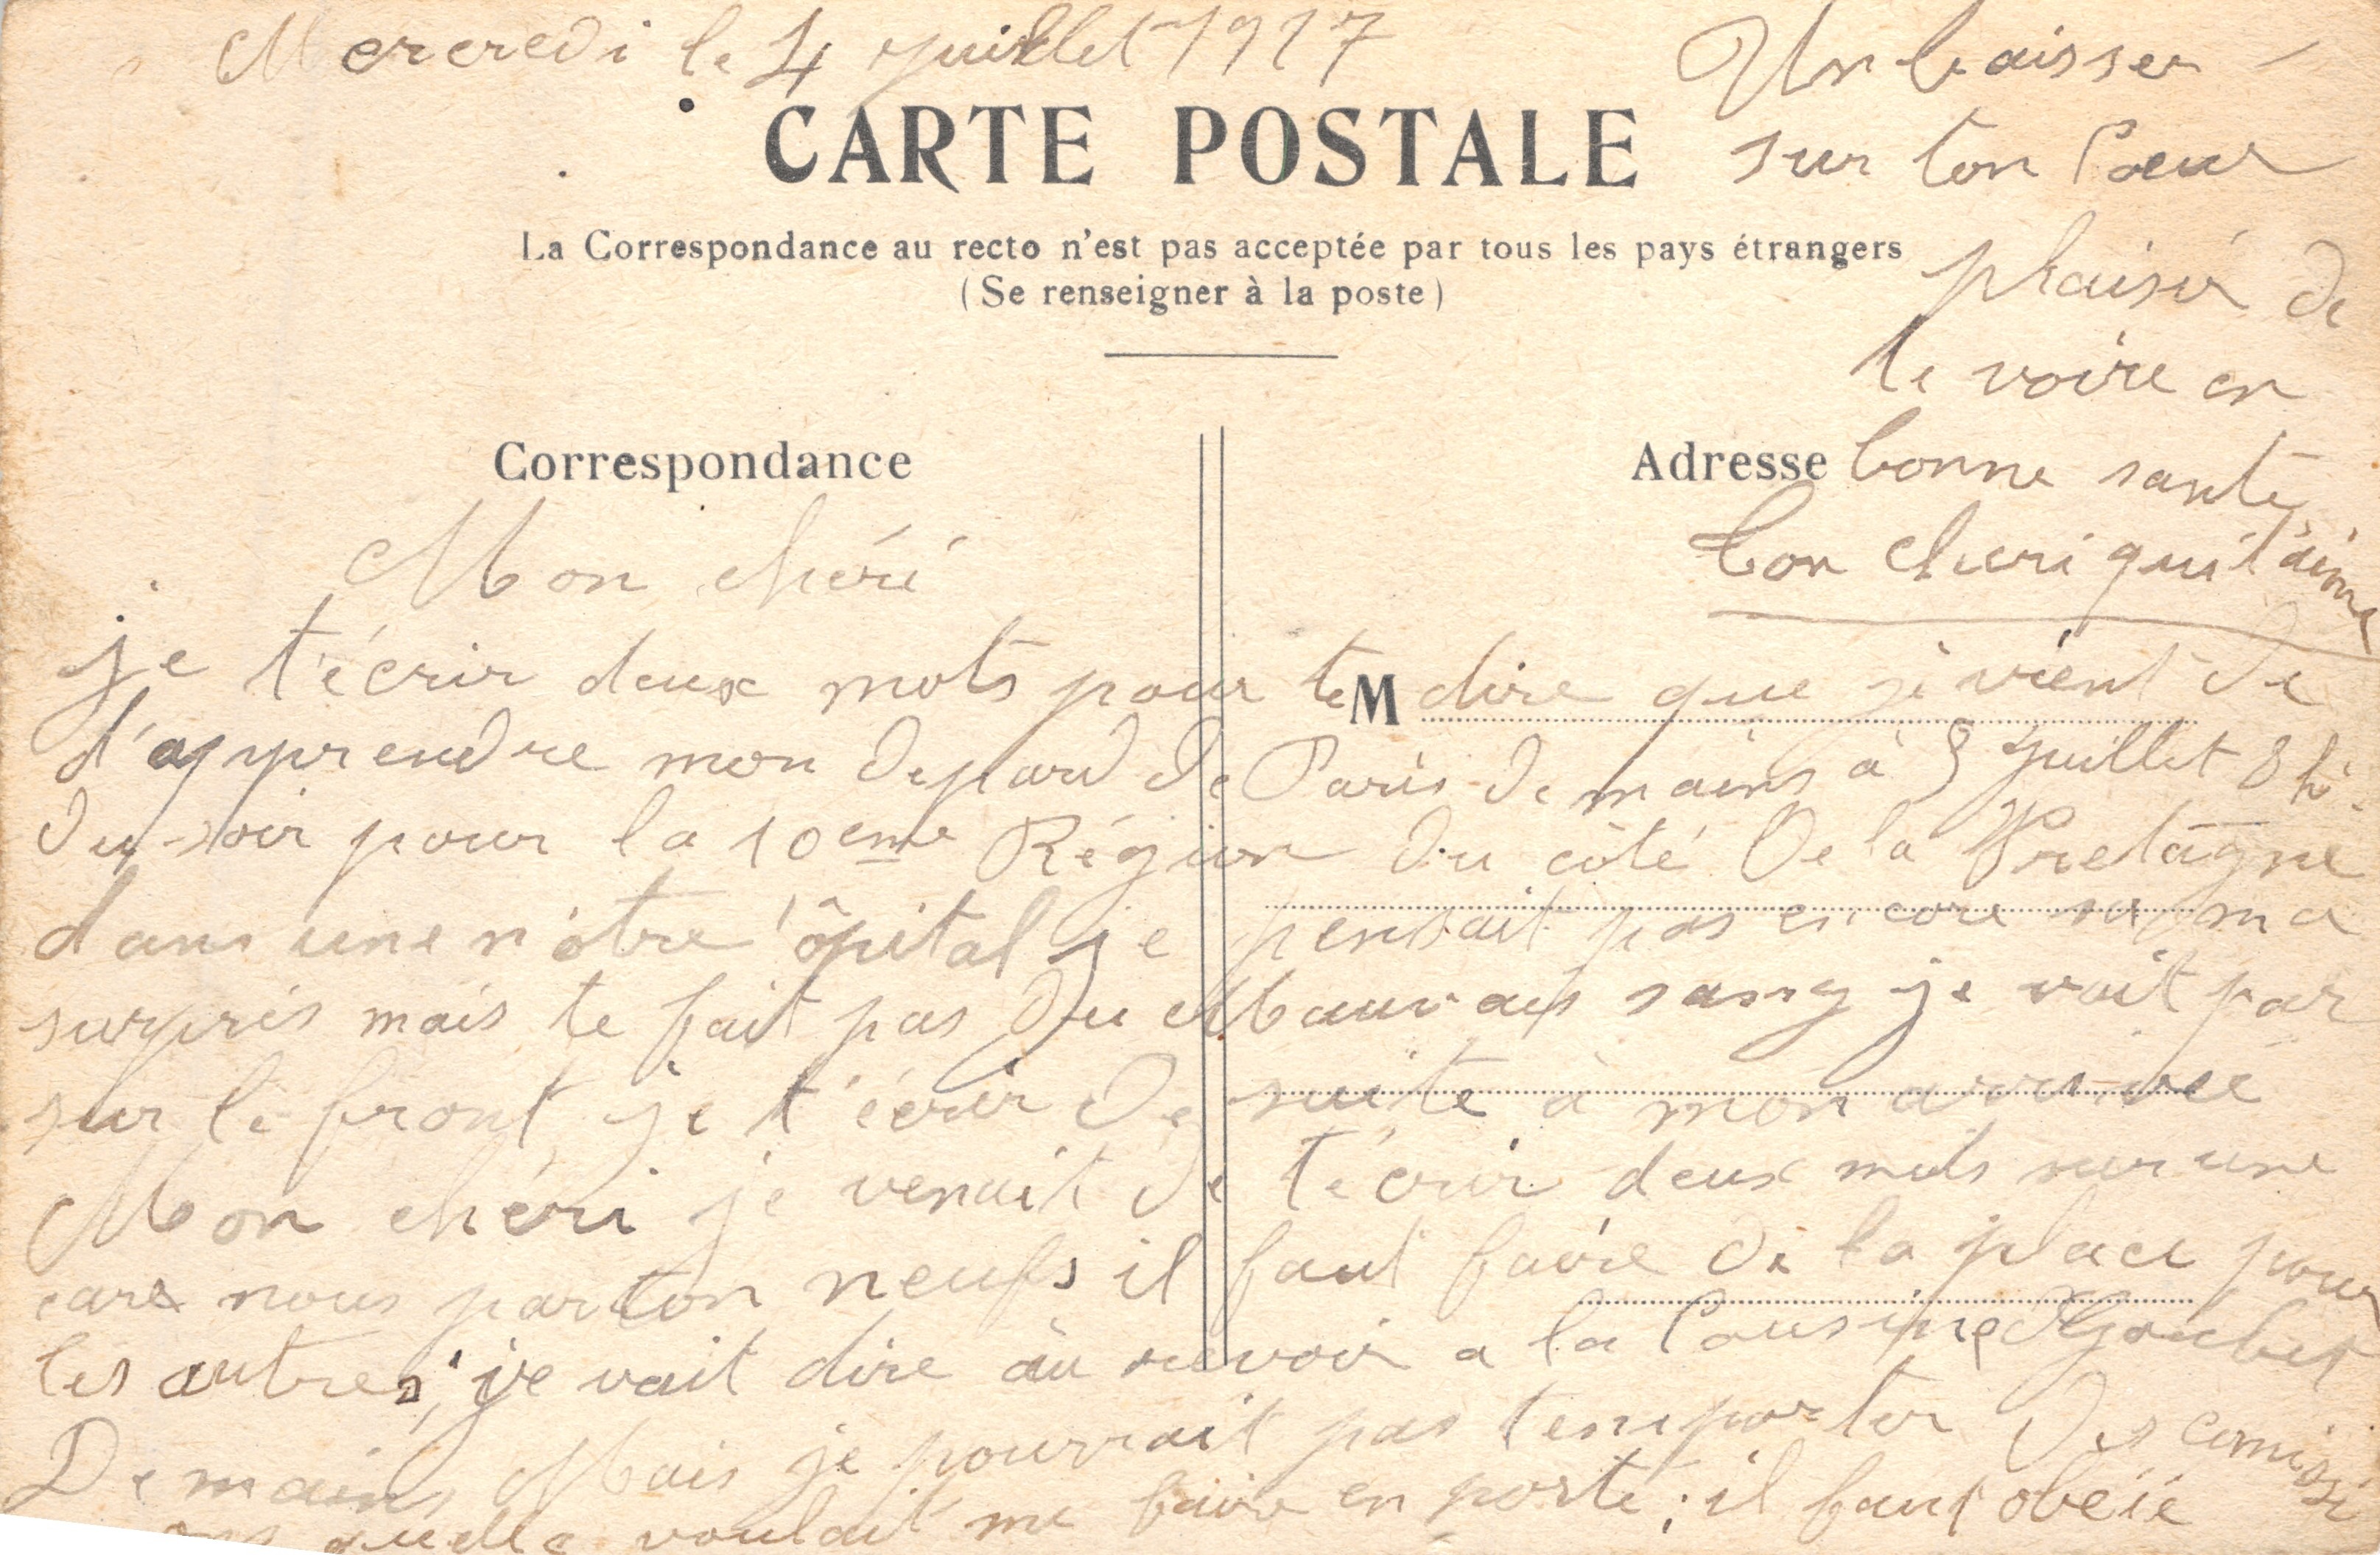 Mercredi le 4 juillet 1917
CARTE POSTALE
La Correspondance au recto n'est pas acceptée par tous les pays étrangers
(Se renseigner à la poste)
Correspondance
Adresse
Mon chéri
je t'écrir deux mots pour te M dire que je vient de
d'apprendre mon depard de Paris demains à 5 juillet 8 h.
du soir pour la 10eme Région du côté De la Bretagne
dans une n'otre 'ôpital je pensait pas encore sa ma
surpris mais te fait pas du Mauvais sang je vait par
sur le front je t'écrir de suite à mon arrivée
Mon chéri je venait de t'ecrir deux mots sur une
care nous parton neufs il faut faire de la place pour
les autres, je vait dire au revoir a la Cousine
Demains Mais je pourrait pas temporter des comissi
quelle voulait me faire en porté; il faut obeïe
Un baisser
sur ton Coeur
plaisir de
te voire en
bonne santé
ton cheri qui t'aime